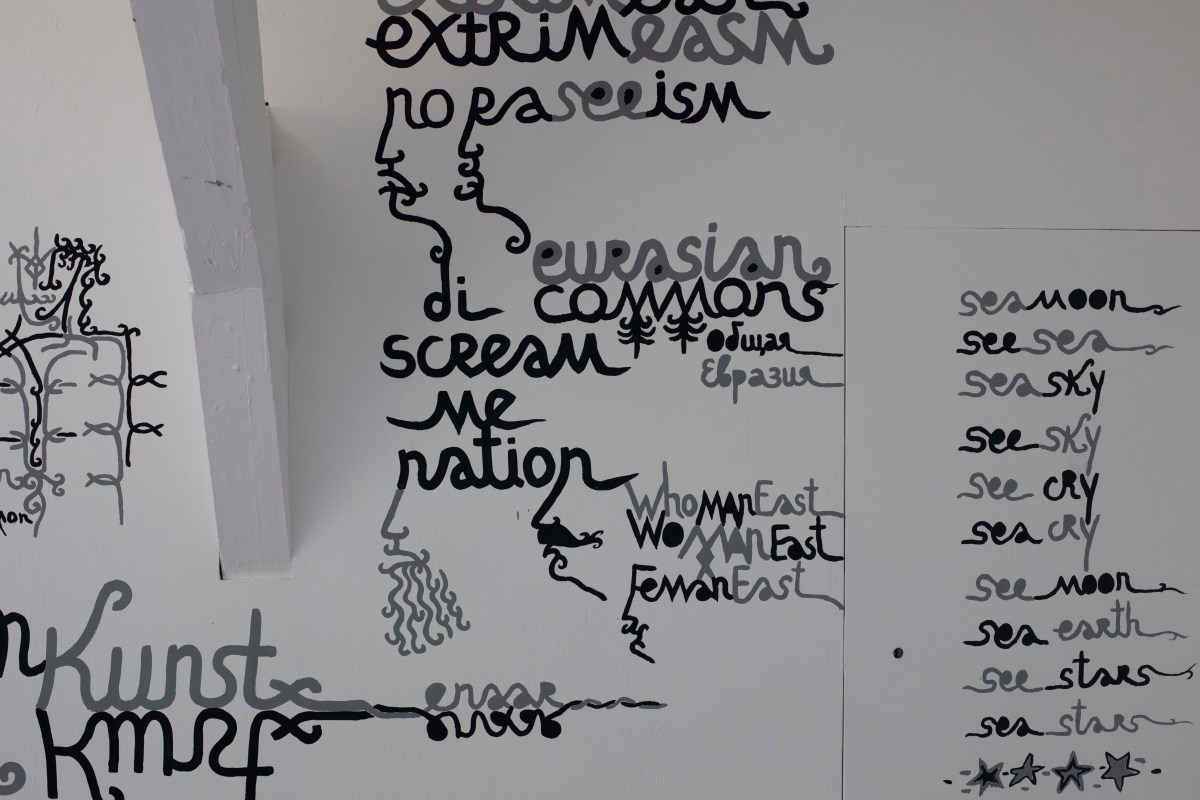 extriMeasM
no paseeism
eurasian
di commons
scream
общая
Евразия
me
nation
WhoMAnEast
WoMAnEast
FemanEast
Kunst
seamoon
see sea
sea sky
see sky
see cry
sea cry
see moon
sea earth
see stars
sea stars